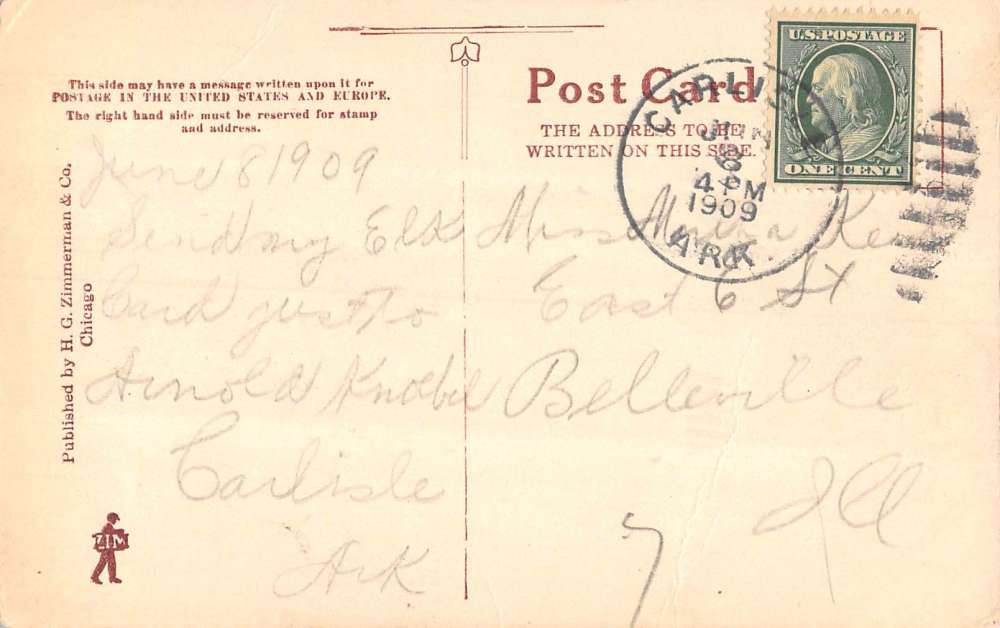 This side may have a message written upon it for
POSTAGE IN THE UNITED STATES AND EUROPE.
The right hand side must be reserved for stamp
and address.
Post Card
THE ADDRESS TO BE
WRITTEN ON THIS SIDE.
U.S. POSTAGE
ONE CENT
CARLISL
JUN
8
4 PM
1909
ARK.
June 8 1909
Send my Elk
Card just to
Arnold Knobel
Carlisle
Ark
Miss
East 6 St
Belleville
Ill
7
Published by H. G. Zimmerman & Co.
Chicago
ZIM